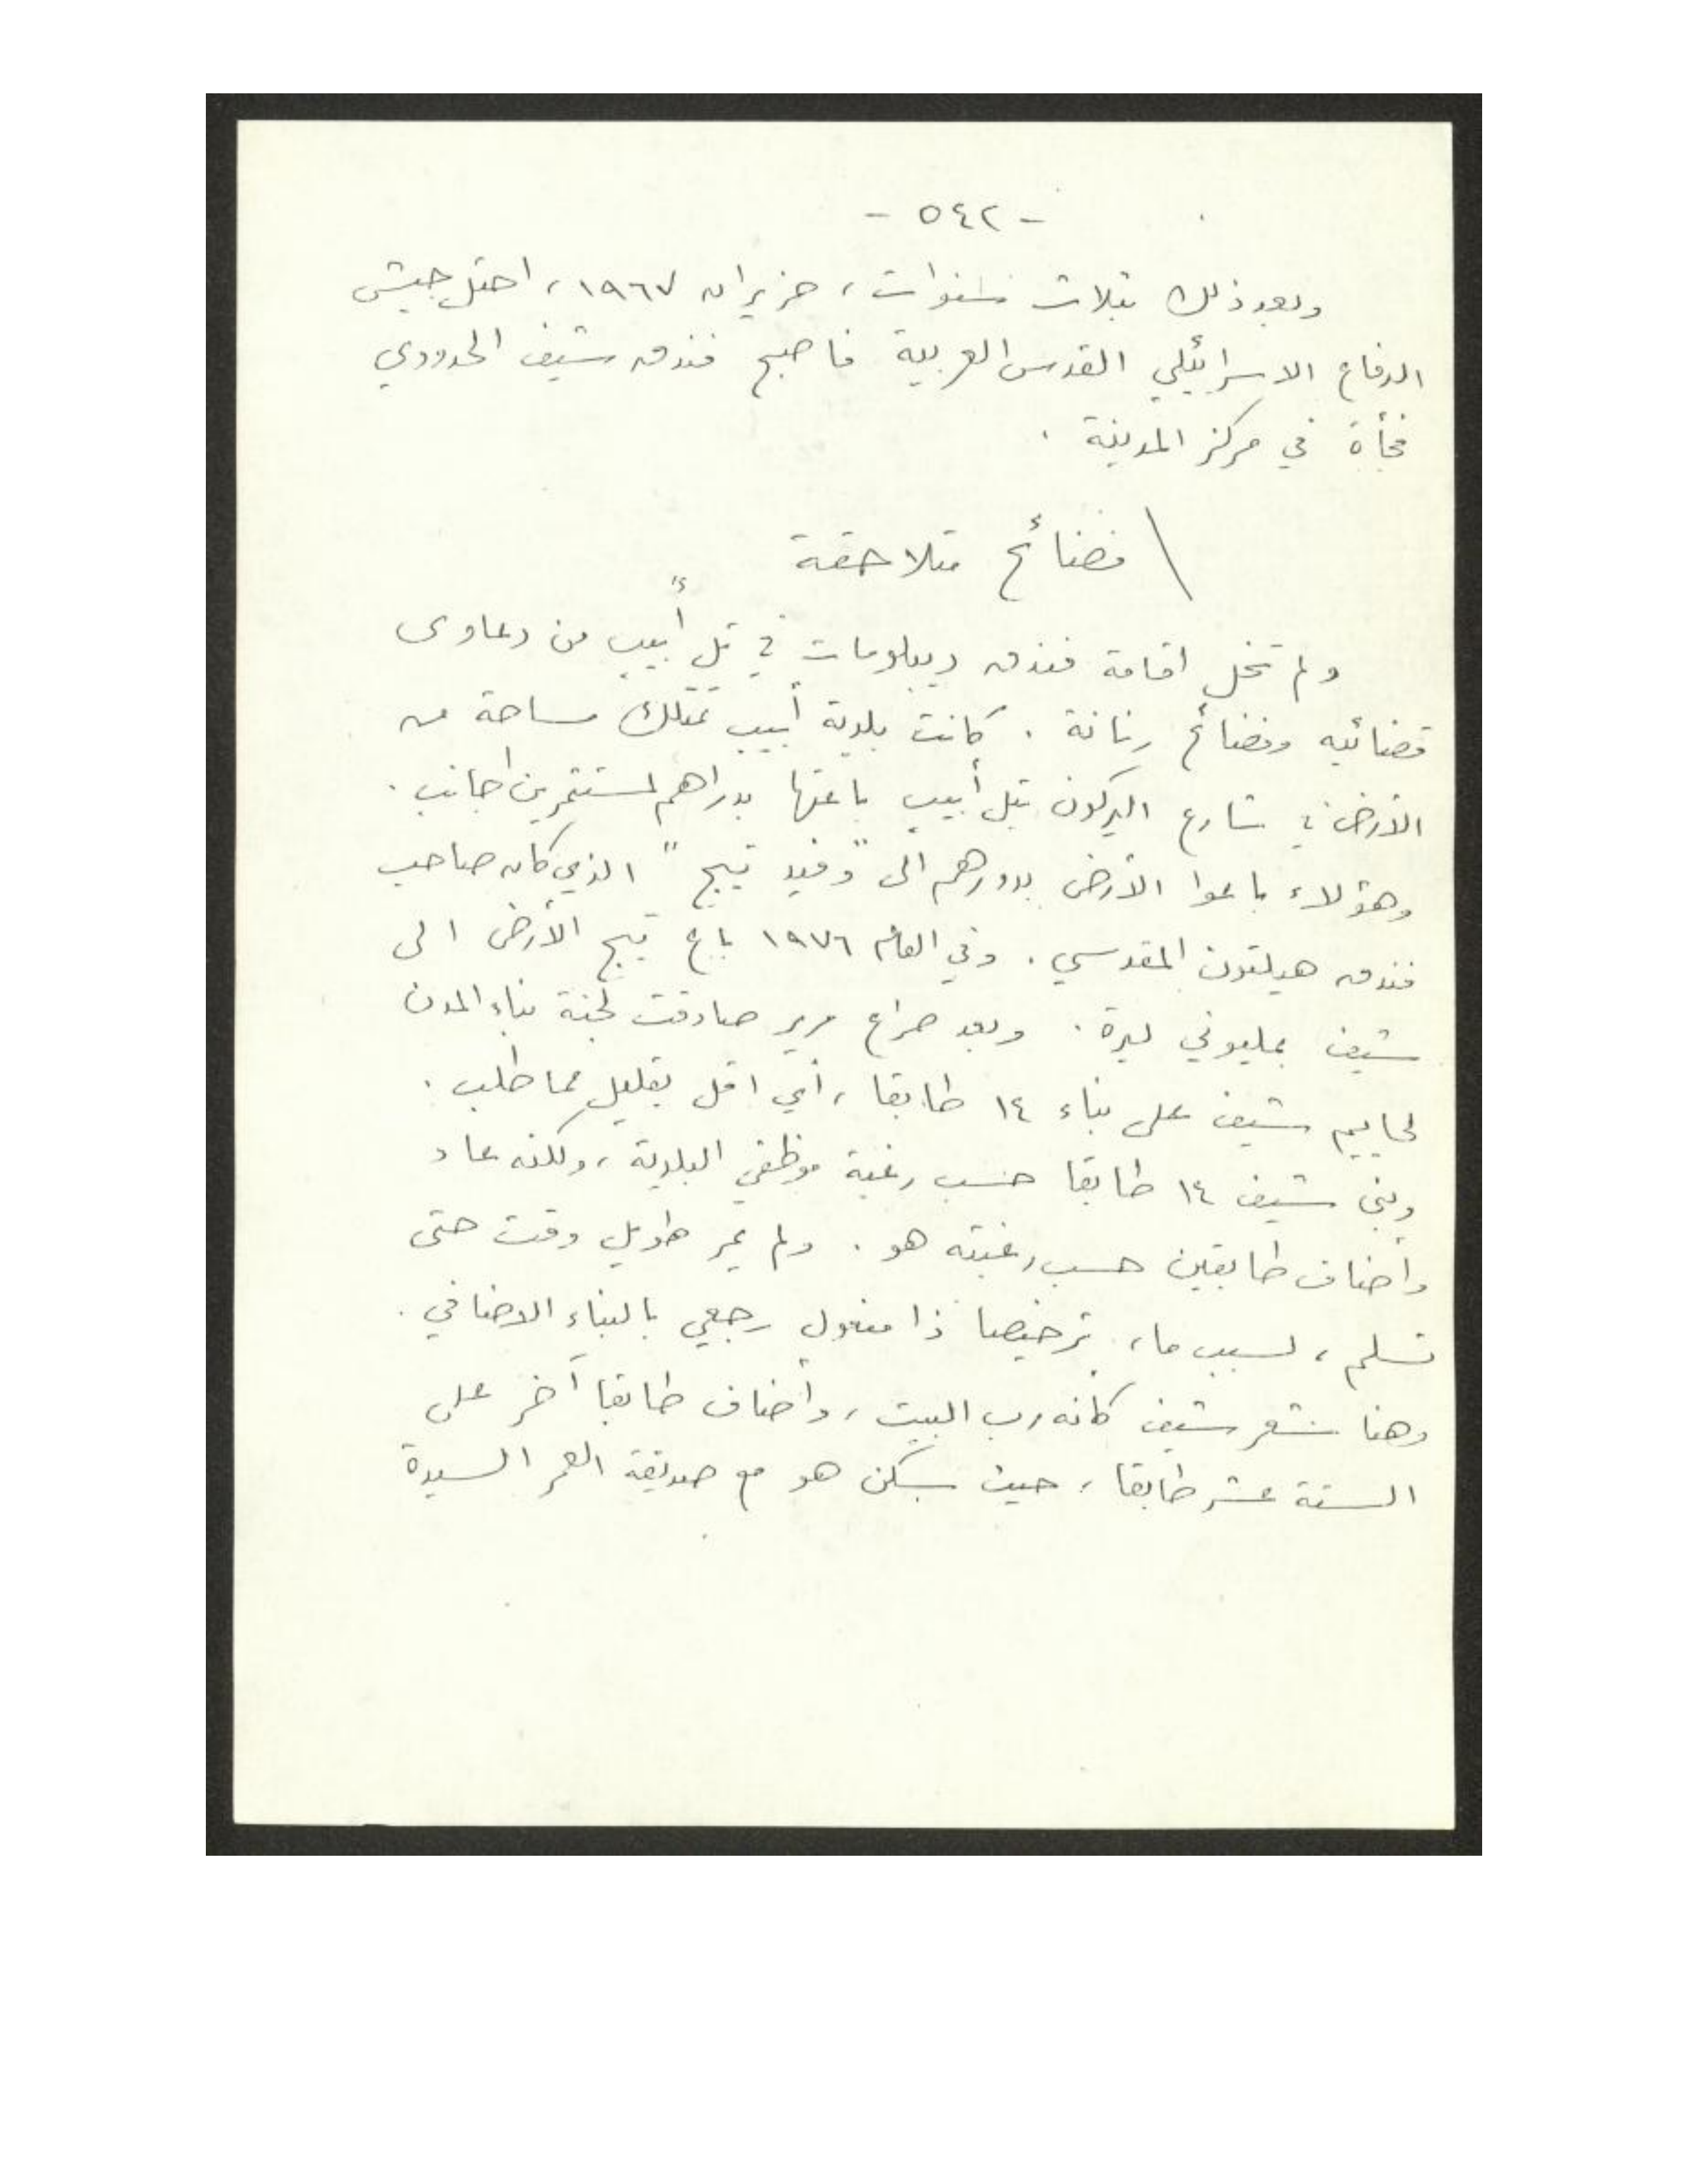 - ٥٤٢ -
وبعد ذلك بثلاث سنوات، حزيران ١٩٦٧، احتل جيش
الدفاع الاسرائيلي القدس العربية فأصبح فندق شيف الحدودي
فجأة في مركز المدينة .
فضائح متلاحقة
ولم تخل اقامة فندق ديبلومات في تل أبيب من دعاوى
قضائيه وفضائح رنانة . كانت بلدية أبيب تمتلك مساحة من
الأرض في شارع اليركون بتل أبيب باعتها بدراهم لمستثمرين اجانب .
وهؤلاء باعوا الأرض بدورهم الى " دفيد تيج " الذي كان صاحب
فندق هيلتون المقدسي . وفي العام ١٩٧٦ باع تيج الأرض الى
شيف بمليوني ليرة . وبعد صراع مرير صادقت لجنة بناء المدن
لحاييم شيف على بناء ١٤ طابقا، أي اقل بقليل مما طلب .
وبنى شيف ١٤ طابقا حسب رغبة موظفي البلدية، ولكنه عاد
وأضاف طابقين حسب رغبته هو . ولم يمر طويل وقت حتى
تسلم، لسبب ما، ترخيصا ذا مفعول رجعي بالبناء الاضافي .
وهنا شعر شيف كأنه رب البيت، وأضاف طابقا آخر على
الستة عشر طابقا، حيث يسكن هو مع صديقة العمر السيدة